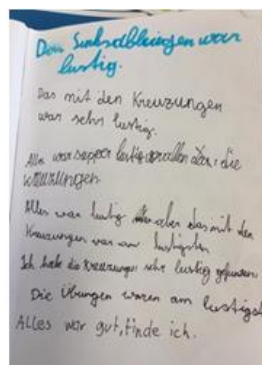 Das Linksabbiegen war
lustig.
Das mit den Kreuzungen
war sehr lustig.
Alles war super lustig vor allem die
Kreuzungen
Alles war lustig aber das mit den
Kreuzungen war am lustigsten
Ich habe die Kreuzungen sehr lustig gefunden
Die Übungen waren am lustigst
Alles war gut, finde ich.